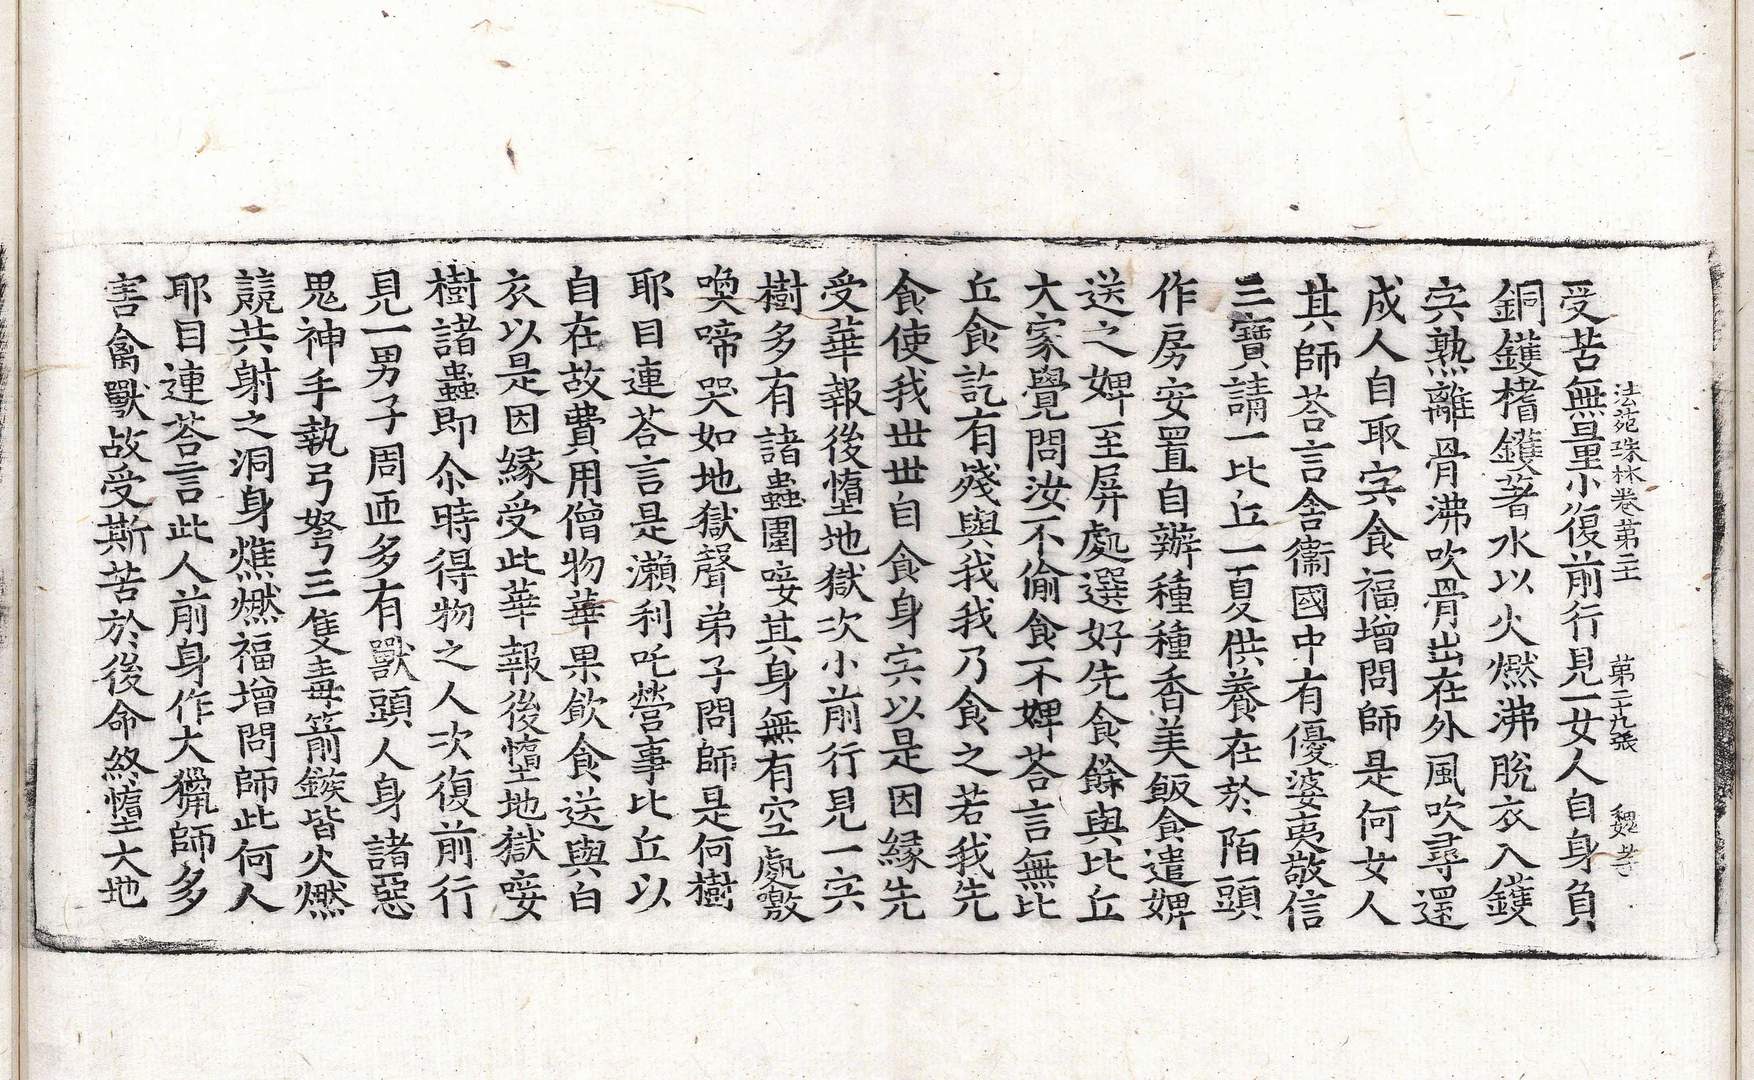 法苑珠林卷第二十　第二十九張　魏孝
受苦無量小復前行見一女人自身負
銅鑊榰鑊著水以火燃沸脫衣入鑊
宍熟離骨沸吹骨出在外風吹尋還
成人自取宍食福增問師是何女人
其師荅言舍衛國中有優婆夷敬信
三寶請一比丘一夏供養在於陌頭
作房安置自辦種種香美飯食遣婢
送之婢至屏處選好先食餘與比丘
大家覺問汝不偷食不婢荅言無比
丘食訖有殘與我我乃食之若我先
食使我丗丗自食身宍以是因緣先
受華報後墮地獄次小前行見一宍
樹多有諸蟲圍唼其身無有空處噭
喚啼哭如地獄聲弟子問師是何樹
耶目連荅言是瀨利吒營事比丘以
自在故費用僧物華果飲食送與白
衣以是因緣受此華報後墮地獄唼
樹諸蟲即尒時得物之人次復前行
見一男子周迊多有獸頭人身諸惡
鬼神手執弓弩三隻毒箭鏃皆火燃
競共射之洞身燋燃福增問師此何人
耶目連荅言此人前身作大獵師多
害禽獸故受斯苦於後命終墮大地